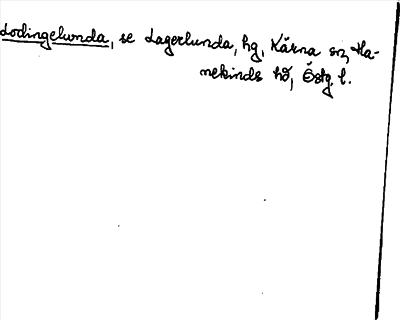 Lodingelunda, se Lagerlunda, hg, Kärna sn, Ha-
nekinds hd, Östg. l.